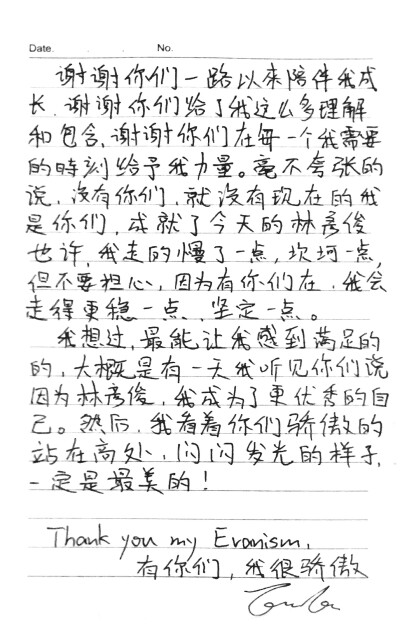 Date. No.
谢谢你们一路以来陪伴我成
长,谢谢你们给了我这么多理解
和包含,谢谢你们在每一个我需要
的時刻给予我力量。毫不夸张的
说,没有你们,就没有现在的我
是你们,成就了今天的林彦俊
也许,我走的慢了一点,坎坷一点,
但不要担心,因为有你们在,我会
走得更稳一点、坚定一点。
我想过,最能让我感到满足的
的,大概是有一天我听见你们说
因为林彦俊,我成为了更优秀的自
己。然后,我看着你们骄傲的
站在高处,闪闪发光的样子,
一定是最美的!
Thank you my Evanism,
有你们,我很骄傲